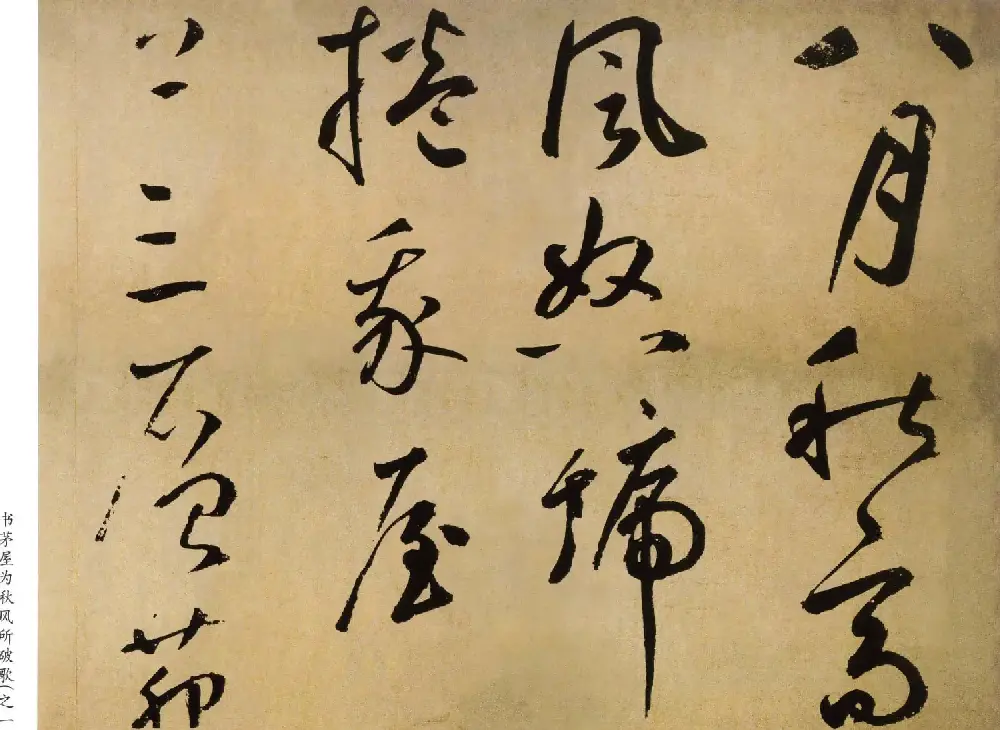 八月秋高
風怒號
捲我屋
上三層茅
书茅屋为秋风所破歌(之一